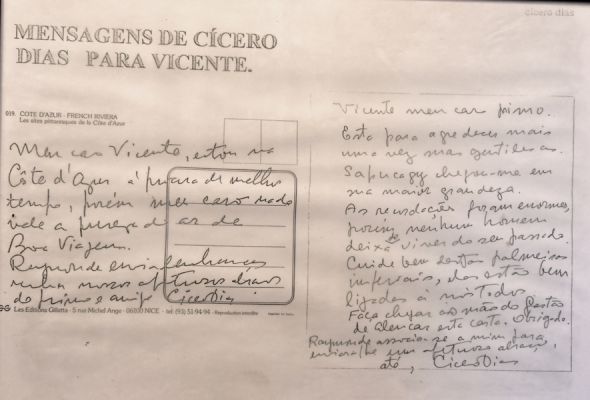 cícero dias
MENSAGENS DE CÍCERO
DIAS PARA VICENTE.
019. COTE D'AZUR - FRENCH RIVIERA
Les sites pittoresques de la Côte d'Azur
Meu caro Vicente, estou na
Côte d'Azur à procura de melhor
tempo, porém meu caro nada
vale a pureza do ar de
Boa Viagem.
Raymonde envia lembranças
meus afetuosos abraços
do primo e amigo Cícero Dias
Les Editions Gilletta - 5 rue Michel Ange - 06100 NICE - tel (93) 51-94-94 - Reproduction interdite
Vicente meu caro primo.
Esta para agradecer mais
uma vez suas gentilezas.
Sapucagy chegou-me em
sua maior grandeza.
As recordações foram enormes,
porém nenhum homem
deixa de viver do seu passado.
Cuide bem destas palmeiras
imperiais, elas estão bem
ligadas à nós todos.
Faça chegar às mãos do
de Alencar esta carta. Obrigado.
Raymonde associa-se a mim para
enviar-lhe um afetuoso abraço,
até, Cícero Dias